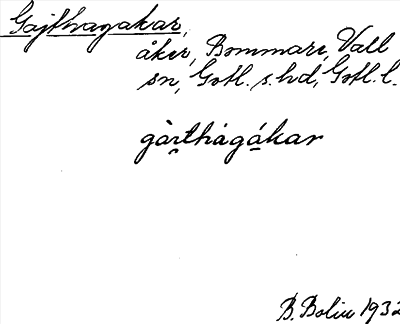 Gajthagakar,
åker, Bommare, Vall
sn, Gotl. s. hd, Gotl. l.
gàrthàgákar
B. Bolin 1932